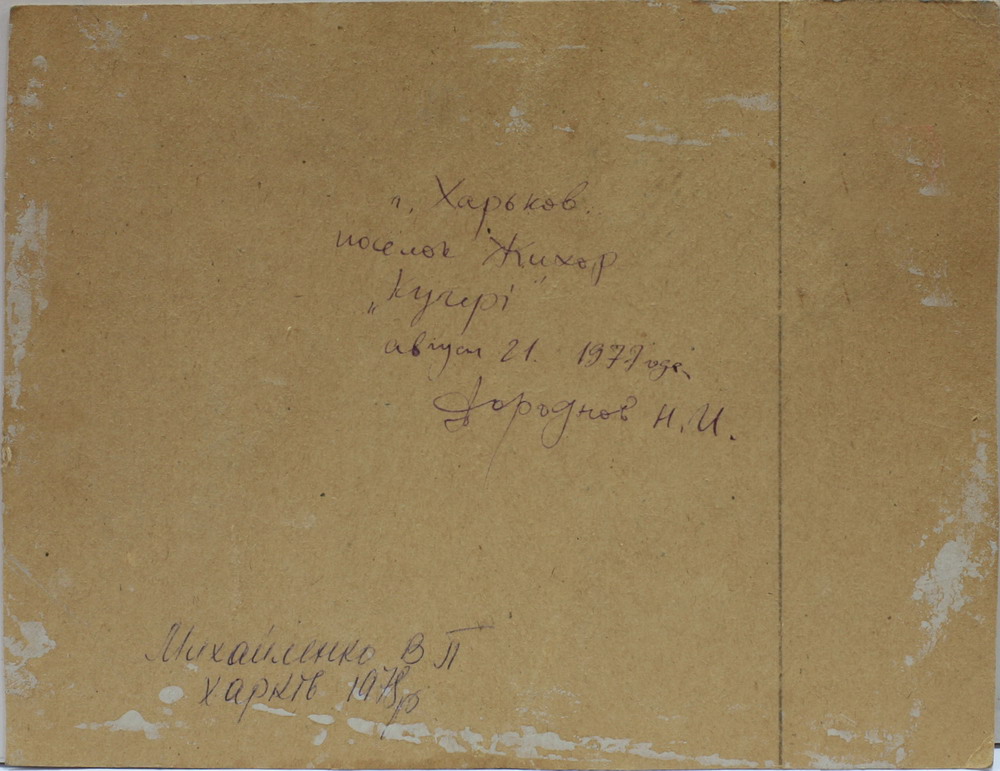 г. Харьков.
поселок Жихор
„Кучері"
август 21. 1977 года
Дороднов Н.И.
Михайленко В П
Харків 1978р